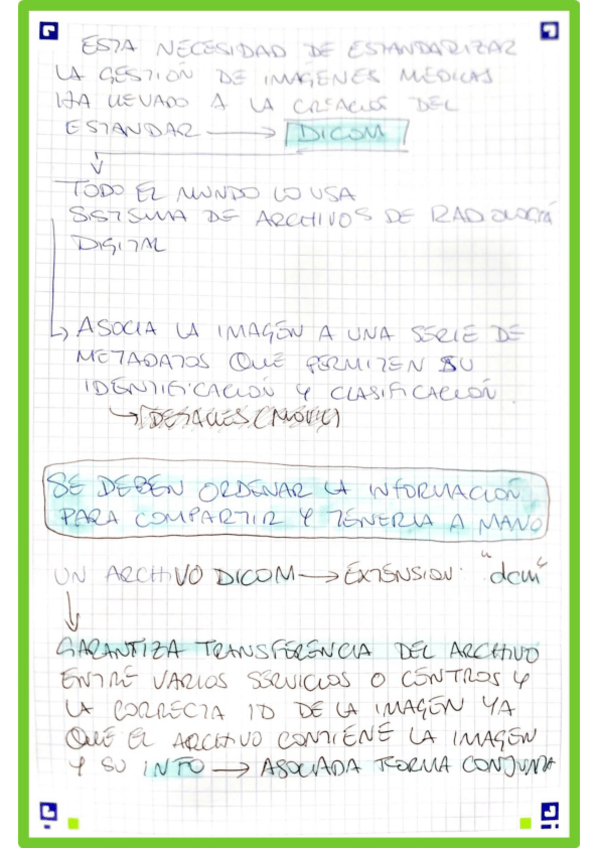 ESTA NECESIDAD DE ESTANDARIZAR
LA GESTIÓN DE IMAGENES MEDICAS
HA LLEVADO A LA CREACIÓN DEL
ESTANDAR → DICOM
TODO EL MUNDO LO USA
SISTEMA DE ARCHIVOS DE RADIOLOGÍA
DIGITAL
ASOCIA LA IMAGEN A UNA SERIE DE
METADATOS QUE PERMITEN SU
IDENTIFICACIÓN Y CLASIFICACIÓN.
[DETALLES (MÓVIL)
SE DEBEN ORDENAR LA INFORMACIÓN
PARA COMPARTIR Y TENERLA A MANO
UN ARCHIVO DICOM → EXTENSION: "dcm"
GARANTIZA TRANSFERENCIA DEL ARCHIVO
ENTRE VARIOS SERVICIOS O CENTROS Y
LA CORRECTA ID DE LA IMAGEN YA
QUE EL ARCHIVO CONTIENE LA IMAGEN
Y SU INFO → ASOCIADA FORMA CONJUNTA